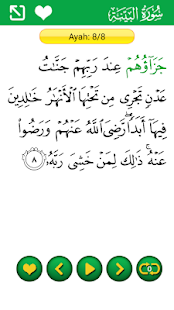 سُورَةُ البَيِّنَةِ
Ayah: 8/8
جَزَآؤُهُمْ عِندَ رَبِّهِمْ جَنَّٰتُ
عَدْنٍ تَجْرِى مِن تَحْتِهَا ٱلْأَنْهَٰرُ خَٰلِدِينَ
فِيهَآ أَبَدًا ۖ رَّضِىَ ٱللَّهُ عَنْهُمْ وَرَضُوا۟
عَنْهُ ۚ ذَٰلِكَ لِمَنْ خَشِىَ رَبَّهُۥ ٨
0